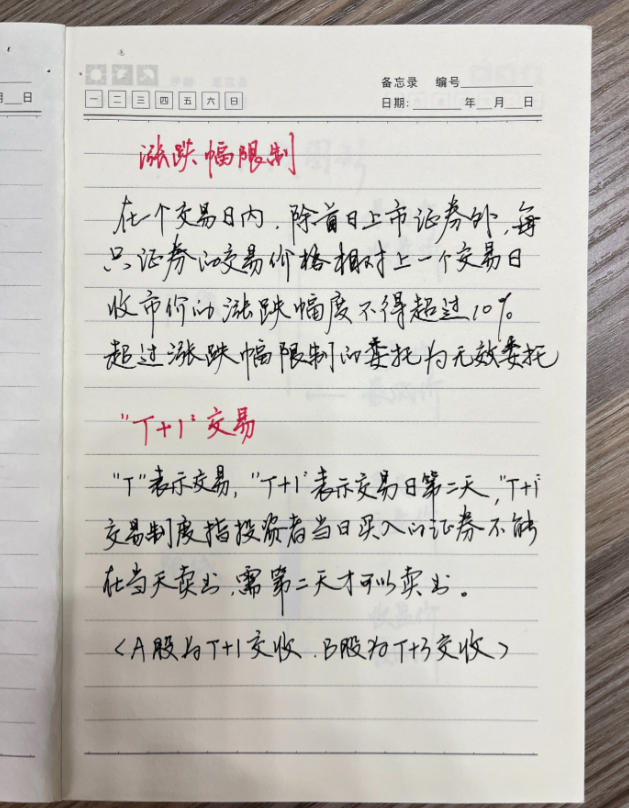 备忘录 编号
一 二 三 四 五 六 日
日期: 年 月 日
月 日
涨跌幅限制
在一个交易日内,除首日上市证券外,每
只证券的交易价格相对上一个交易日
收市价的涨跌幅度不得超过10%
超过涨跌幅限制的委托为无效委托
"T+1"交易
"T"表示交易,"T+1"表示交易日第二天,"T+1"
交易制度指投资者当日买入的证券不能
在当天卖出,需第二天才可以卖出。
<A股为T+1交收.B股为T+3交收>